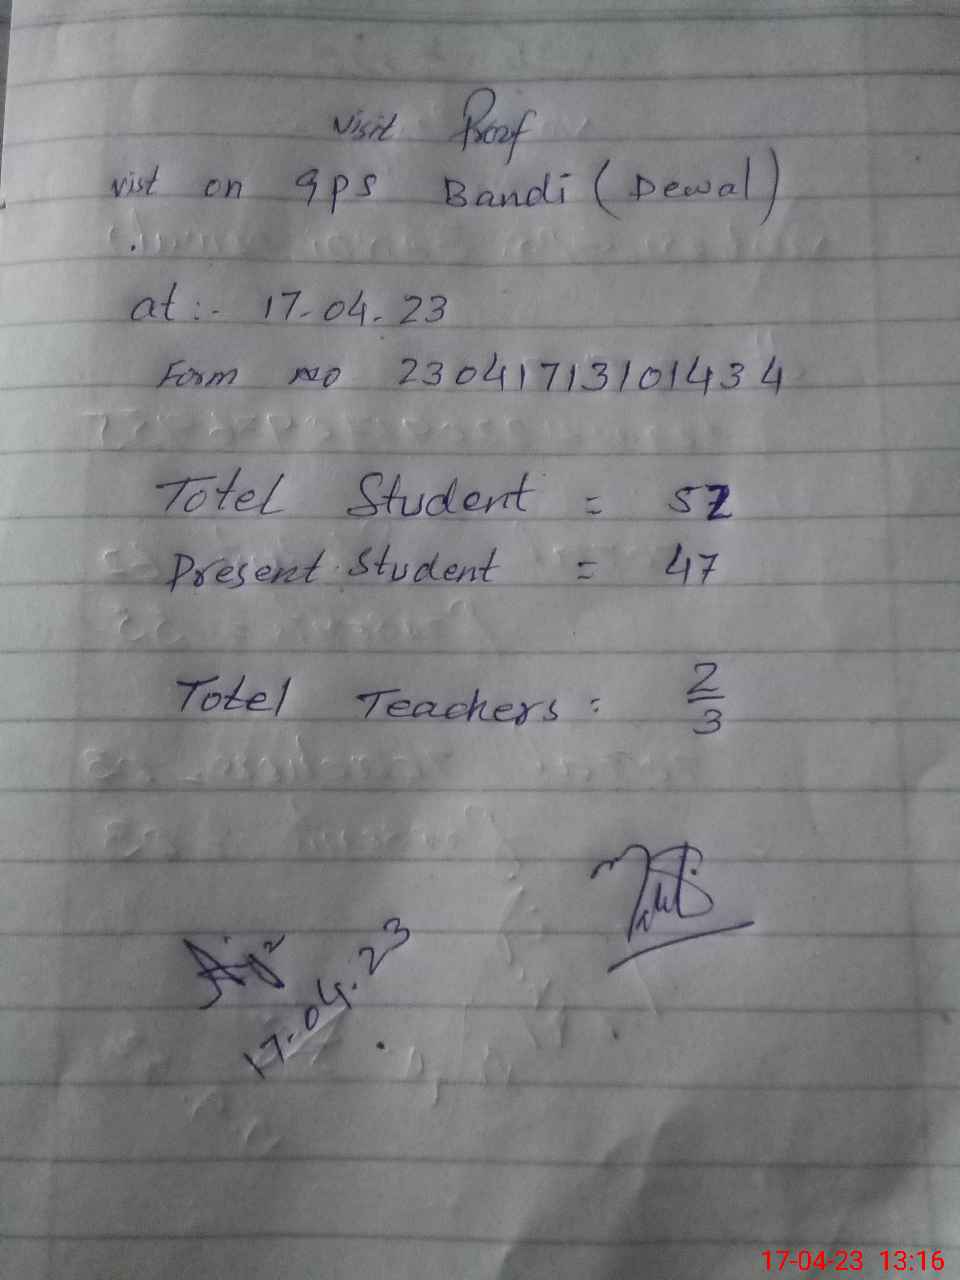 Visit Proof
vist on GPS Bandi (Dewal)
at :- 17-04-23
Form no 23041713101434
Totel Student = 52
Present Student = 47
Totel Teachers = 2/3
17-04-23
17-04-23 13:16